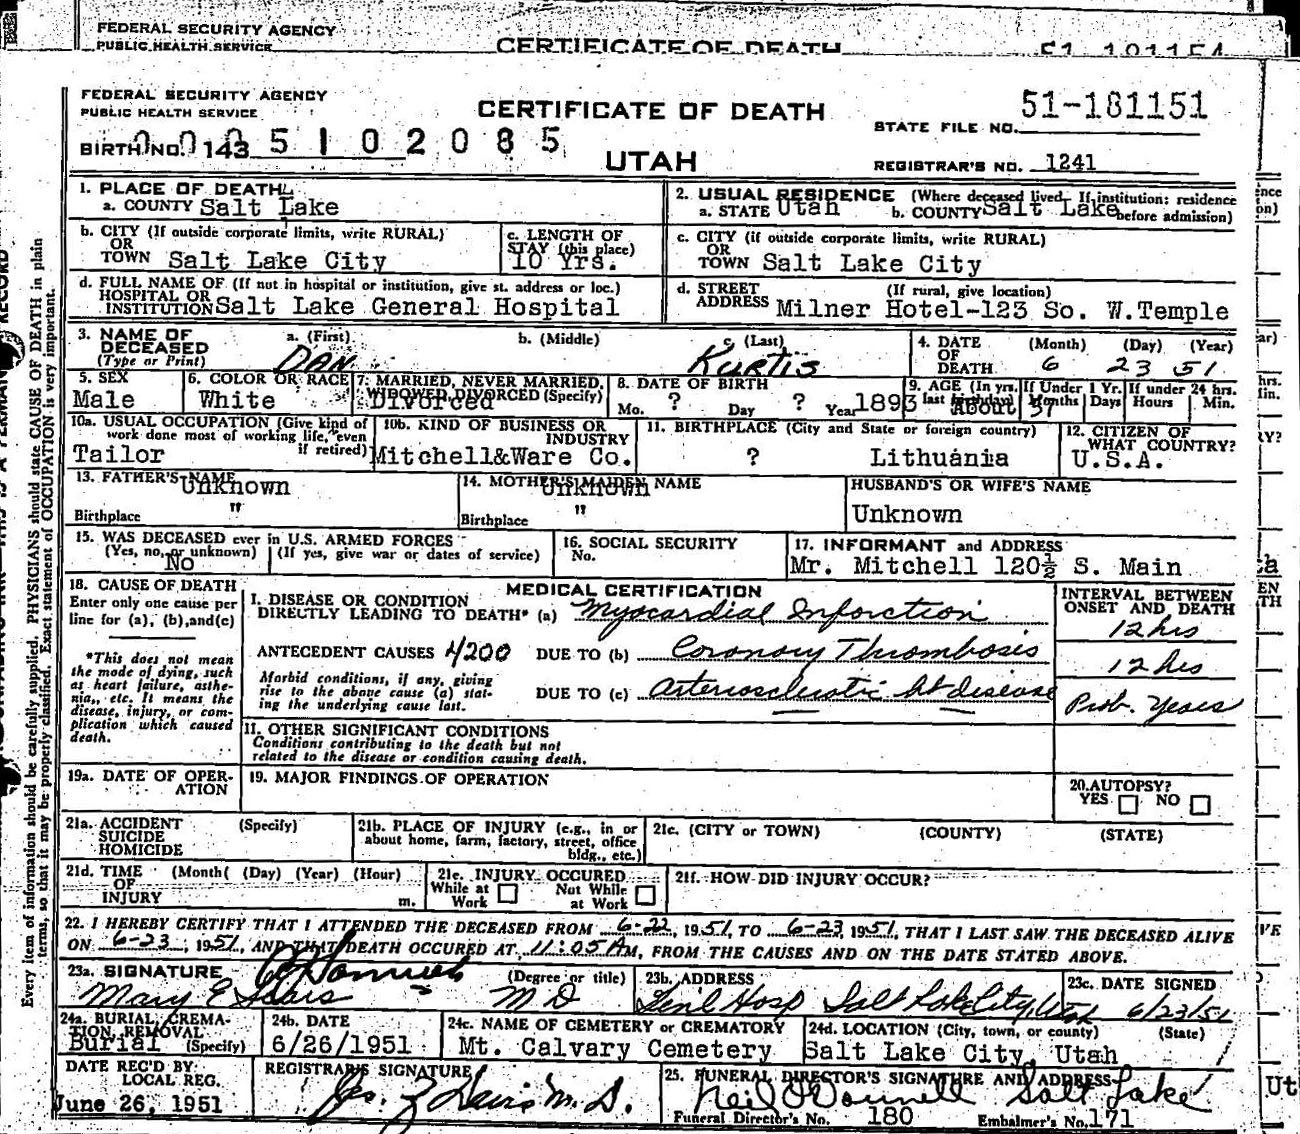 FEDERAL SECURITY AGENCY
PUBLIC HEALTH SERVICE
CERTIFICATE OF DEATH
51 181154
FEDERAL SECURITY AGENCY
PUBLIC HEALTH SERVICE
CERTIFICATE OF DEATH
STATE FILE NO. 51-181151
BIRTH NO. 143 5 1 0 2 0 8 5
UTAH
REGISTRAR'S NO. 1241
1. PLACE OF DEATH
a. COUNTY Salt Lake
2. USUAL RESIDENCE (Where deceased lived. If institution: residence before admission)
a. STATE Utah b. COUNTY Salt Lake
b. CITY (If outside corporate limits, write RURAL)
OR
TOWN Salt Lake City
c. LENGTH OF
STAY (this place)
10 Yrs.
c. CITY (if outside corporate limits, write RURAL)
OR
TOWN Salt Lake City
d. FULL NAME OF (If not in hospital or institution, give st. address or loc.)
HOSPITAL OR
INSTITUTION Salt Lake General Hospital
d. STREET (If rural, give location)
ADDRESS Milner Hotel-123 So. W.Temple
3. NAME OF
DECEASED
(Type or Print)
a. (First) b. (Middle) c. (Last)
DAN Kurtis
4. DATE
OF
DEATH
(Month) (Day) (Year)
6 23 51
5. SEX
Male
6. COLOR OR RACE
White
7. MARRIED, NEVER MARRIED,
WIDOWED, DIVORCED (Specify)
Divorced
8. DATE OF BIRTH
Mo. ? Day ? Year 1893
9. AGE (In yrs. last birthday)
About 57
If Under 1 Yr.
Months Days
If under 24 hrs.
Hours Min.
10a. USUAL OCCUPATION (Give kind of
work done most of working life, even
if retired)
Tailor
10b. KIND OF BUSINESS OR
INDUSTRY
Mitchell&Ware Co.
11. BIRTHPLACE (City and State or foreign country)
? Lithuania
12. CITIZEN OF
WHAT COUNTRY?
U.S.A.
13. FATHER'S NAME
Unknown
Birthplace "
14. MOTHER'S MAIDEN NAME
Unknown
Birthplace "
HUSBAND'S OR WIFE'S NAME
Unknown
15. WAS DECEASED ever in U.S. ARMED FORCES
(Yes, no, or unknown) (If yes, give war or dates of service)
No
16. SOCIAL SECURITY
No.
17. INFORMANT and ADDRESS
Mr. Mitchell 120½ S. Main
18. CAUSE OF DEATH
Enter only one cause per
line for (a), (b), and (c)
*This does not mean
the mode of dying, such
as heart failure, asthe-
nia,, etc. It means the
disease, injury, or com-
plication which caused
death.
MEDICAL CERTIFICATION
INTERVAL BETWEEN
ONSET AND DEATH
I. DISEASE OR CONDITION
DIRECTLY LEADING TO DEATH* (a) Myocardial Inforction
12 hrs
ANTECEDENT CAUSES 4200 DUE TO (b) Coronary Thrombosis
12 hrs
Morbid conditions, if any, giving
rise to the above cause (a) stat-
ing the underlying cause last.
DUE TO (c) arteriosclerotic ht disease
Prob. Years
II. OTHER SIGNIFICANT CONDITIONS
Conditions contributing to the death but not
related to the disease or condition causing death.
19a. DATE OF OPER-
ATION
19. MAJOR FINDINGS OF OPERATION
20. AUTOPSY?
YES NO
21a. ACCIDENT (Specify)
SUICIDE
HOMICIDE
21b. PLACE OF INJURY (e.g., in or
about home, farm, factory, street, office
bldg., etc.)
21c. (CITY or TOWN) (COUNTY) (STATE)
21d. TIME (Month( (Day) (Year) (Hour)
OF
INJURY m.
21e. INJURY OCCURED
While at Work Not While at Work
21f. HOW DID INJURY OCCUR?
22. I HEREBY CERTIFY THAT I ATTENDED THE DECEASED FROM 6-22, 1951, TO 6-23, 1951, THAT I LAST SAW THE DECEASED ALIVE
ON 6-23, 1951, AND THAT DEATH OCCURED AT 11:05 AM, FROM THE CAUSES AND ON THE DATE STATED ABOVE.
23a. SIGNATURE (Degree or title)
Mary E Sears M D
23b. ADDRESS
Genl Hosp Salt Lake City, Utah
23c. DATE SIGNED
6/23/51
24a. BURIAL, CREMA-
TION, REMOVAL
Burial (Specify)
24b. DATE
6/26/1951
24c. NAME OF CEMETERY or CREMATORY
Mt. Calvary Cemetery
24d. LOCATION (City, town, or county) (State)
Salt Lake City, Utah
DATE REC'D BY
LOCAL REG.
June 26, 1951
REGISTRAR'S SIGNATURE
M. D.
25. FUNERAL DIRECTOR'S SIGNATURE AND ADDRESS
Neil O'Donnell Salt Lake
Funeral Director's No. 180 Embalmer's No. 171
Every item of information should be carefully supplied. PHYSICIANS should state CAUSE OF DEATH in plain
terms, so that it may be properly classified. Exact statement of OCCUPATION is very important.